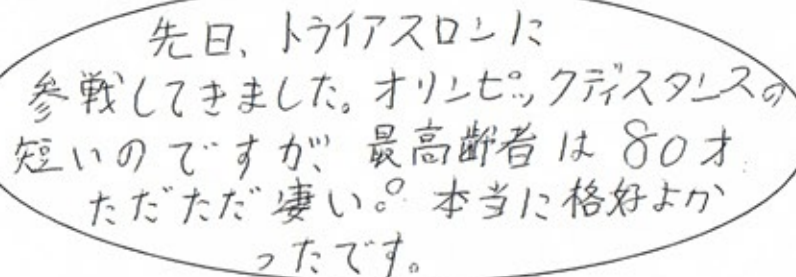 先日、トライアスロンに
参戦してきました。オリンピックディスタンスの
短いのですが、最高齢者は80才
ただただ凄い。本当に格好よか
ったです。